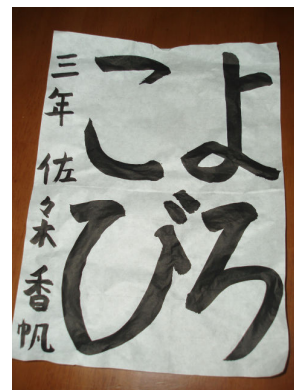 よろ
こび
三年 佐々木 香帆